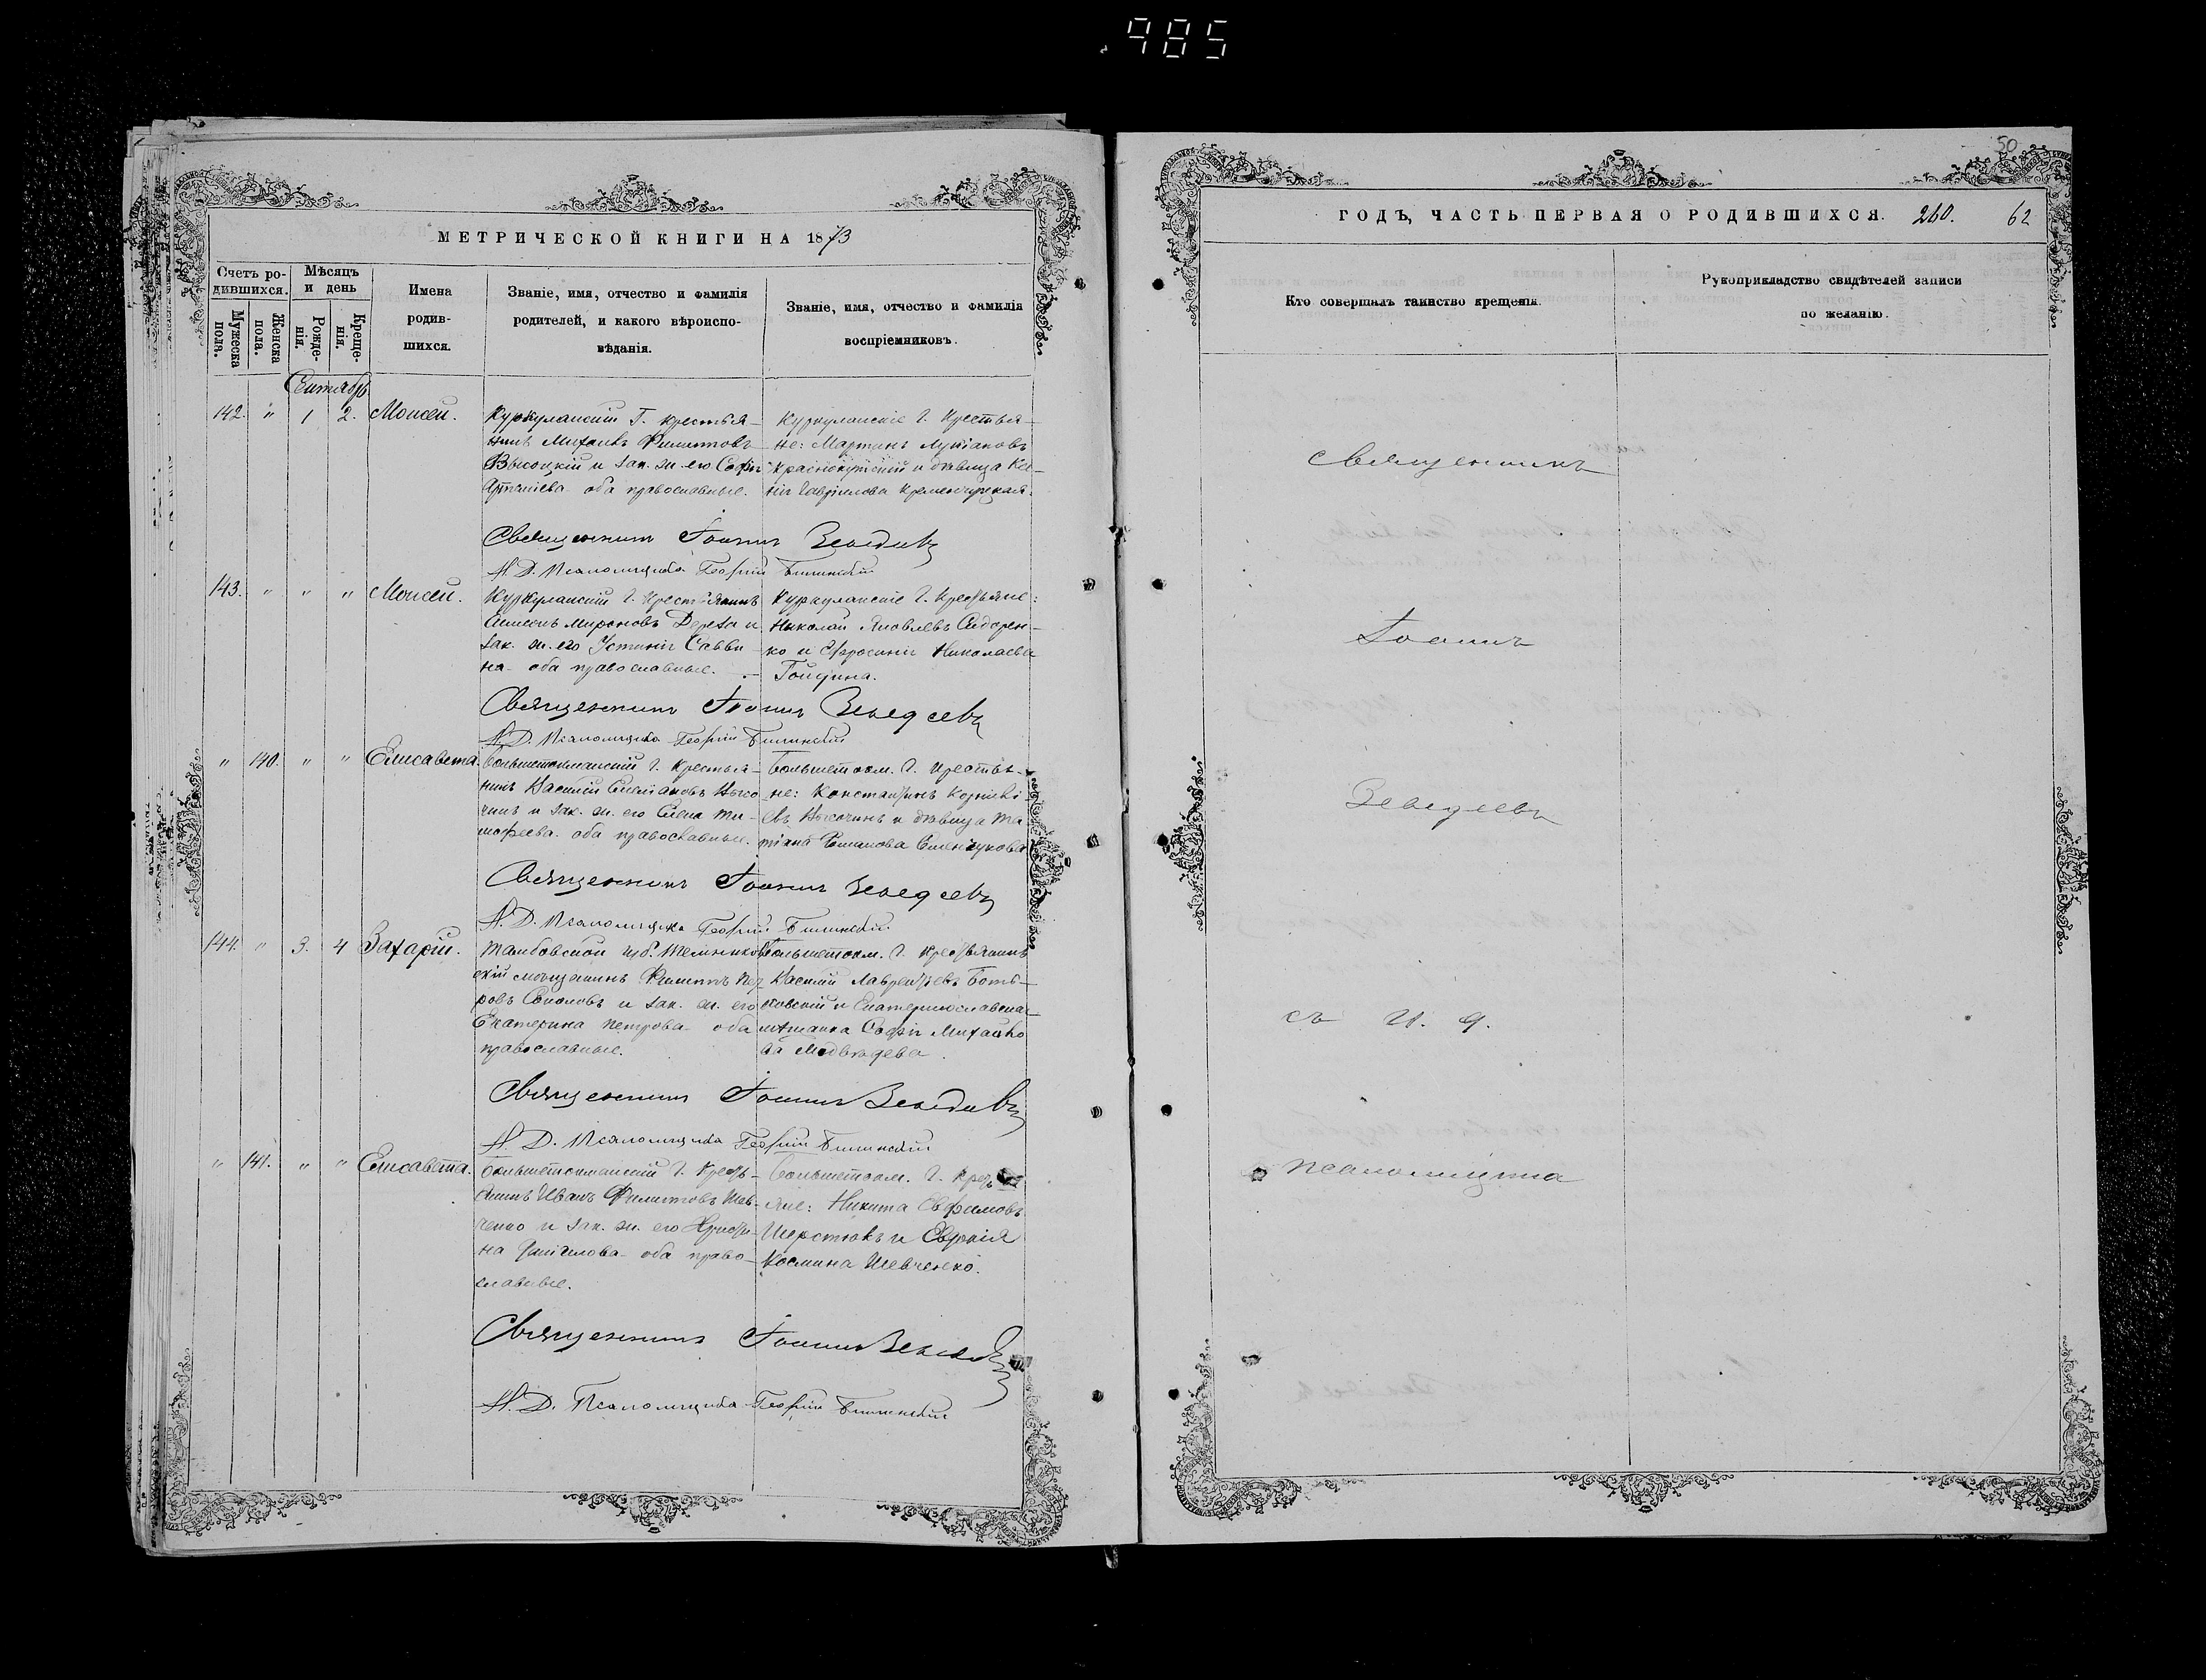 985
МЕТРИЧЕСКОЙ КНИГИ НА 1873
Счетъ родившихся.
Мѣсяцъ и день
Имена родившихся.
Званіе, имя, отчество и фамилія родителей, и какого вѣроисповѣданія.
Званіе, имя, отчество и фамилія воспріемниковъ.
Мужеска пола.
Женска пола.
Рожденія.
Крещенія.
Сентябрь
142. " 1 2. Моисей.
Куркулакскій Г. крестья-
нинъ Михаилъ Филиповъ
Высоцкій и зак. ж. его Софія
оба православные.
Куркулакскіе Г. Крестья-
не: Мартинъ Лукіановъ
Краснокутскій и дѣвица Ксе-
нія Гавріилова Кременчуцкая.
Священникъ Іоаннъ Зеведеевъ
И. Д. Псаломщика Георгій
143. " " " Моисей.
Куркулакскій Г. Крестьянинъ
Мироновъ Дереза и
зак. ж. его Устинія Савви-
на оба православные.
Куркулакскіе Г. Крестьяне:
Николай Яковлевъ Сидорен-
ко и Ефросинія Николаева
Священникъ Іоаннъ Зеведеевъ
И. Д. Псаломщика Георгій
" 140. " " Елисавета.
Большетокмакскій Г. Крестья-
нинъ Василій Высо-
чинъ и зак. ж. его Елена Ти-
мофеева оба православные.
Большетокм. Г. Крестья-
не: Константинъ Корніи-
евъ Высочинъ и дѣвица Та-
тіана
Священникъ Іоаннъ Зеведеевъ
И. Д. Псаломщика Георгій
144. " 3. 4 Захарій.
Тамбовской губ. Темников-
скій мѣщанинъ Филиппъ Пет-
ровъ Соколовъ и зак. ж. его
Екатерина Петрова оба
православные.
Большетокм. Г. Крестьянинъ
Василій Лаврентіевъ
и Екатеринославская
мѣщанка Софія Михайло-
ва Медвѣдева.
Священникъ Іоаннъ Зеведеевъ
И. Д. Псаломщика Георгій
" 141. " " Елисавета.
Большетокмакскій Г. Кресть-
янинъ Иванъ Филиповъ Шев-
ченко и зак. ж. его Христи-
на оба право-
славные.
Большетокм. Г. Кресть-
яне: Никита Евфимовъ
Шерстюкъ и Евфимія
Космина Шевченко.
Священникъ Іоаннъ Зеведеевъ
И. Д. Псаломщика Георгій
50
ГОДЪ, ЧАСТЬ ПЕРВАЯ О РОДИВШИХСЯ. 260. 62
Кто совершалъ таинство крещенія.
Рукоприкладство свидѣтелей записи по желанію.
Священникъ
Іоаннъ
Зеведеевъ
съ И. д.
псаломщика